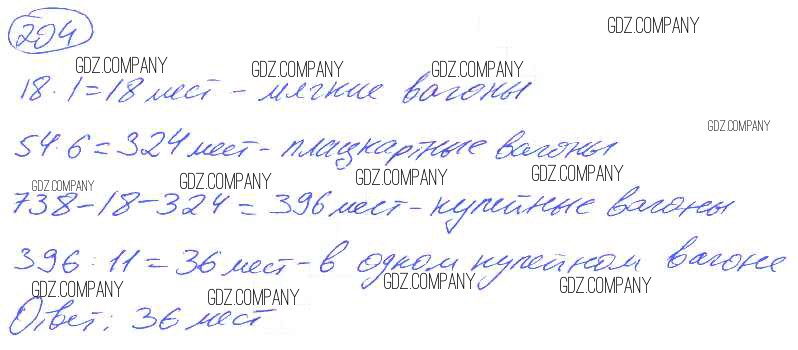 204
GDZ.COMPANY
GDZ.COMPANY GDZ.COMPANY GDZ.COMPANY
18·1=18 мест - мягкие вагоны
GDZ.COMPANY
54·6=324 мест - плацкартные вагоны
GDZ.COMPANY GDZ.COMPANY GDZ.COMPANY GDZ.COMPANY
738-18-324=396 мест - купейные вагоны
396:11=36 мест - в одном купейном вагоне
GDZ.COMPANY GDZ.COMPANY GDZ.COMPANY GDZ.COMPANY
Ответ: 36 мест